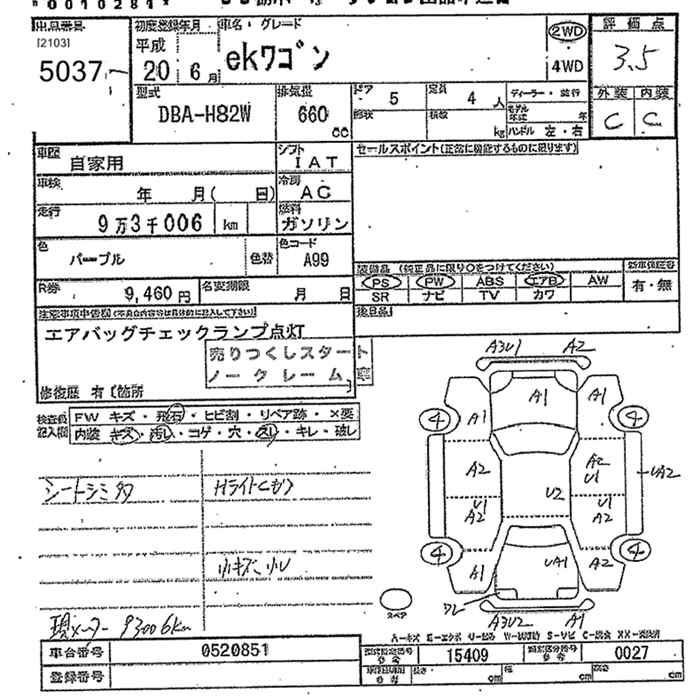 出品番号 初度登録年月 車名・グレード 評価点
[2103] 平成 ekワゴン 2WD 3.5
5037 20 6月 4WD
型式 排気量 ドア 5 定員 4人 ディーラー・並行 外装 内装
DBA-H82W 660 cc 形状 積数 kg モデル年式 年 ハンドル 左・右 C C
車歴 自家用 シフト IAT セールスポイント(正常に機能するものに限ります)
車検 年 月( 日) 冷房 AC
走行 9万3千006 km 燃料 ガソリン
色 パープル 色替 色コード A99
装備品 (純正品に限り○をつけてください) 新車保証書
R券 9,460円 名変期限 月 日 PS PW ABS エアB AW 有・無
SR ナビ TV カワ
注意事項申告欄(不具合内容等は具体的に記入して下さい) 後日品
エアバッグチェックランプ点灯
売りつくしスタート
ノークレーム
修復歴 有 〔箇所
検査員 記入欄 FW キズ・飛石・ヒビ割・リペア跡・×要
内装 キズ・汚レ・コゲ・穴・スレ・キレ・破レ
A3U1 A2
A1 A1 A1
4 4
A2 A2 U1 UA2
U1 A2 U2 U1 A2
4 4
A1 UA1 A2
A3U2 A1
シートシミ多 Hライトヒカリ
小キズ、小U
スペア
現メーター 93006km
車台番号 0520851
型式指定番号 参考 15409 類別区分番号 参考 0027
登録番号 長さ・ cm 幅 cm 高さ cm